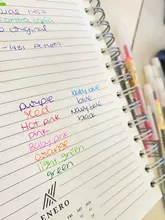 original
purple baby blue
red blue
Hot pink Navy blue
pink black
Baby pink
orange
light green
green
ENERO